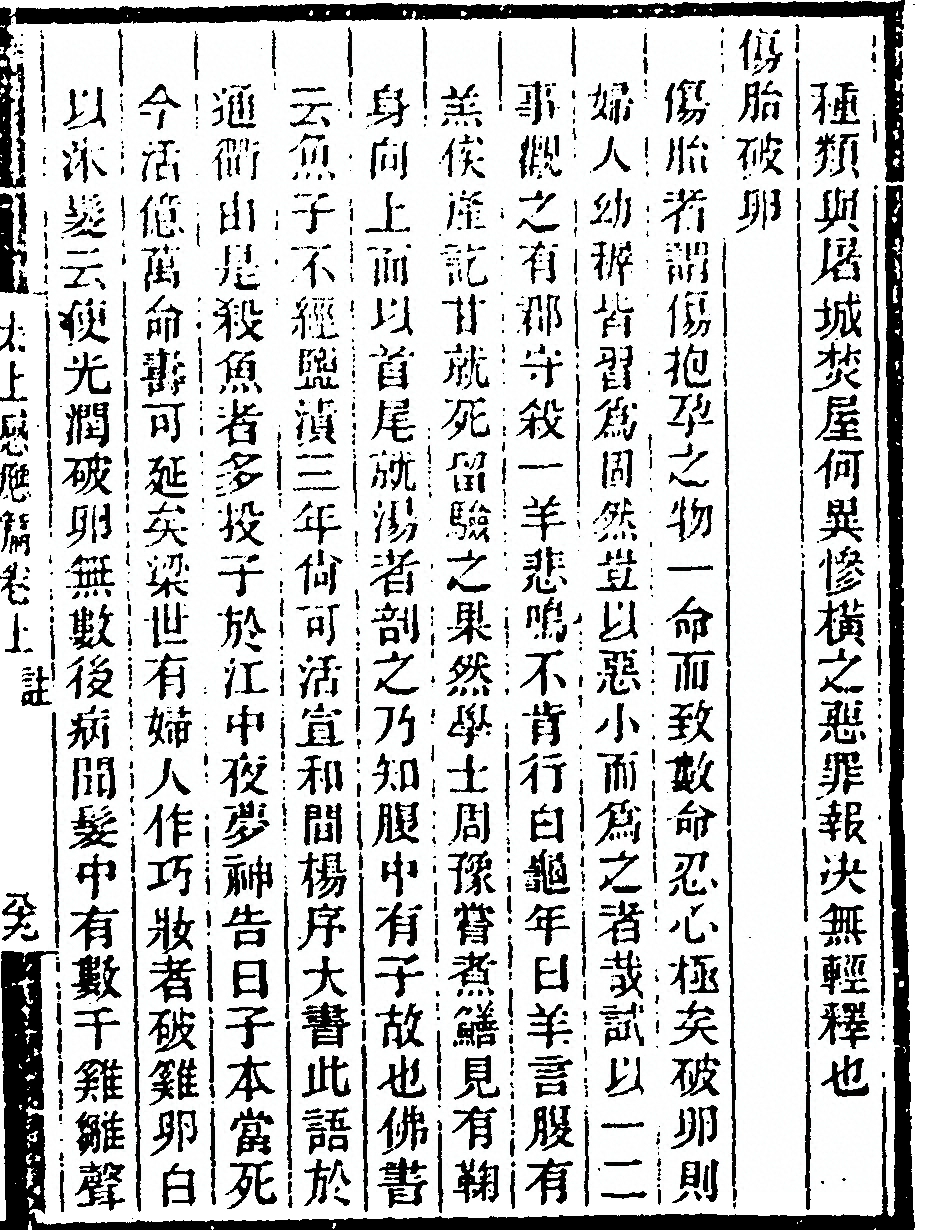 種類與屠城焚屋何異慘橫之惡罪報決無輕釋也
傷胎破卵
傷胎者謂傷抱孕之物一命而致數命忍心極矣破卵則
婦人幼稺皆習爲固然豈以惡小而爲之者哉試以一二
事觀之有郡守殺一羊悲鳴不肯行白龜年曰羊言腹有
羔俟產訖甘就死留驗之果然學士周豫嘗煮鱔見有鞠
身向上而以首尾就湯者剖之乃知腹中有子故也佛書
云魚子不經鹽漬三年尙可活宣和間楊序大書此語於
通衢由是殺魚者多投子於江中夜夢神告曰子本當死
今活億萬命壽可延矣梁世有婦人作巧妝者破雞卵白
以沐髮云使光潤破卵無數後病聞髮中有數千雞雛聲
太上感應篇卷上 註